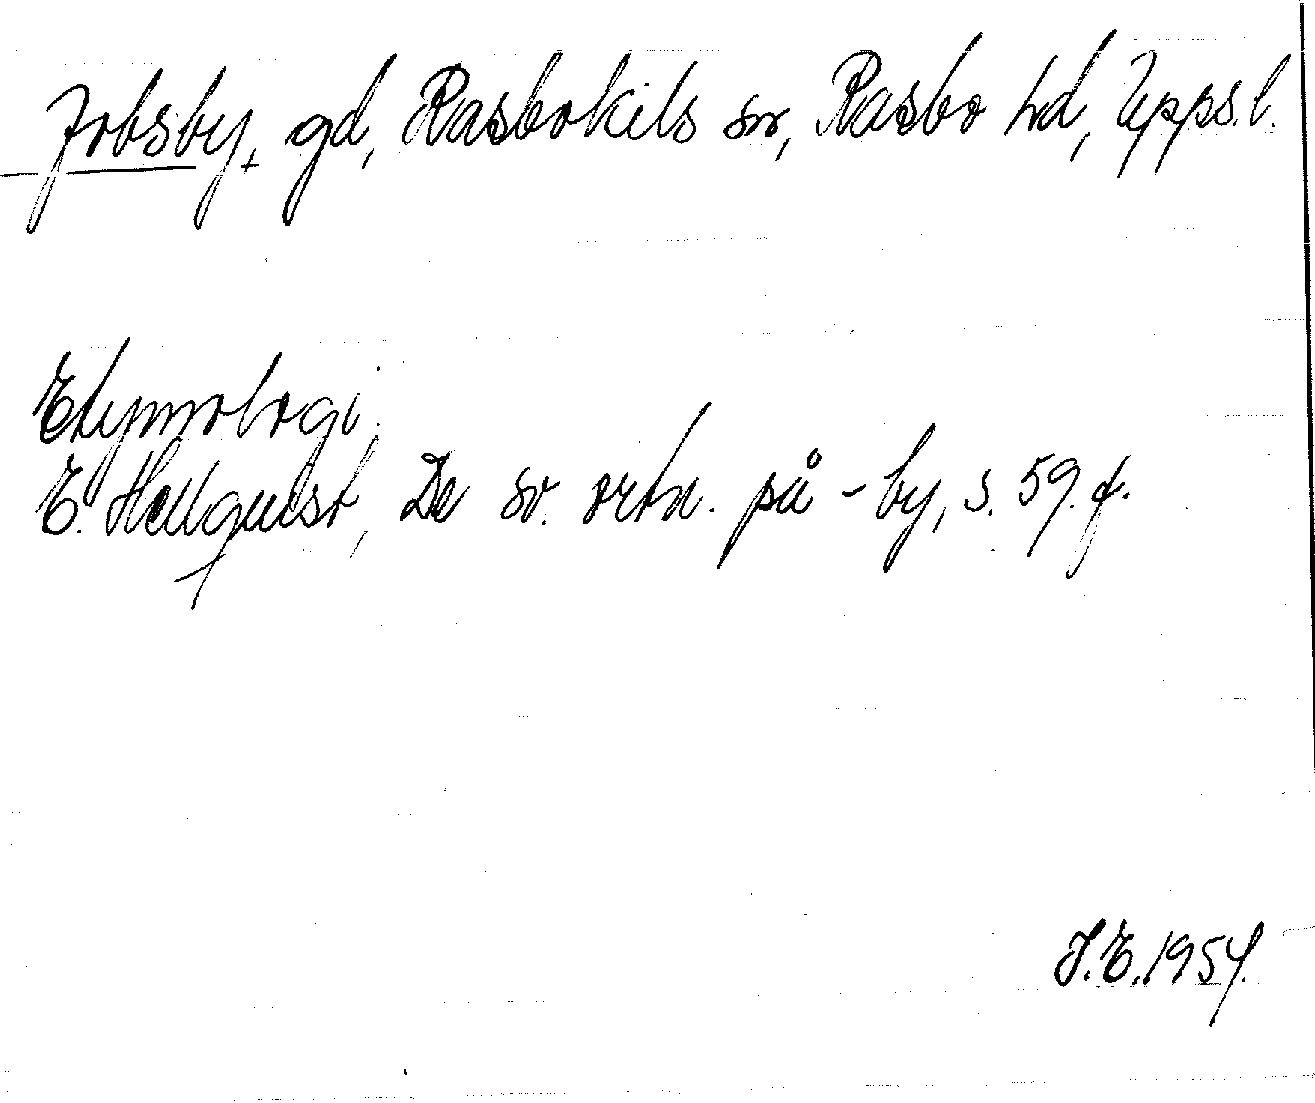 Jobsby, gd, Rasbokils sn, Rasbo hd, Upps. l.
Etymologi,
E. Hellquist, De sv. ortn. på -by, s. 59. f.
J. E. 1954.